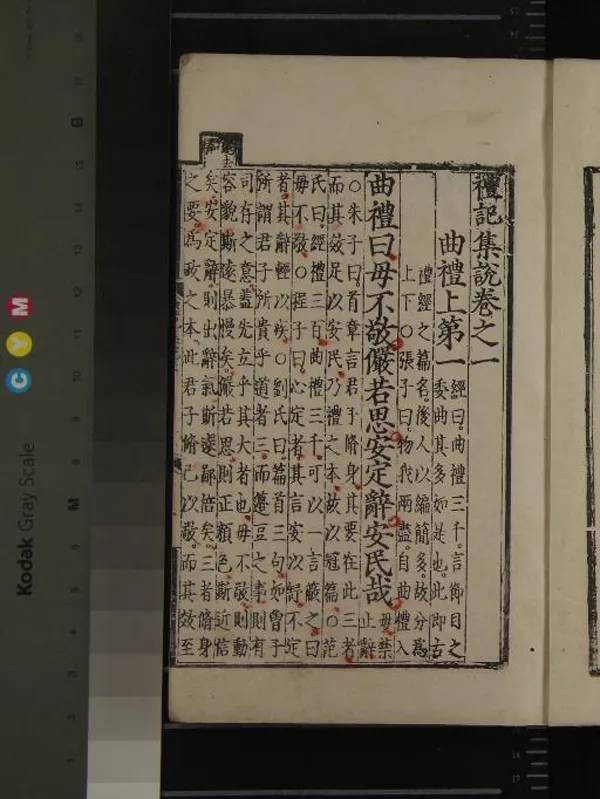 禮記集說卷之一
曲禮上第一
經曰曲禮三千言節目之
委曲其多如是也此即古
禮經之篇名後人以編簡多故分爲
上下○張子曰物我兩盡自曲禮入
曲禮曰毋不敬儼若思安定辭安民哉
毋禁
止辭
○朱子曰首章言君子脩身其要在此三者
而其效足以安民乃禮之本故以冠篇○范
氏曰經禮三百曲禮三千可以一言蔽之曰
毋不敬○程子曰心定者其言安以舒不定
者其辭輕以疾○劉氏曰篇首三句如曾子
所謂君子所貴乎道者三而籩豆之事則有
司存之意蓋先立乎其大者也毋不敬則動
容貌斯遠暴慢矣儼若思則正顏色斯近信
矣安定辭則出辭氣斯遠鄙倍矣三者脩身
之要爲政之本此君子脩己以敬而其效至
Kodak Gray Scale
C Y M
B
M